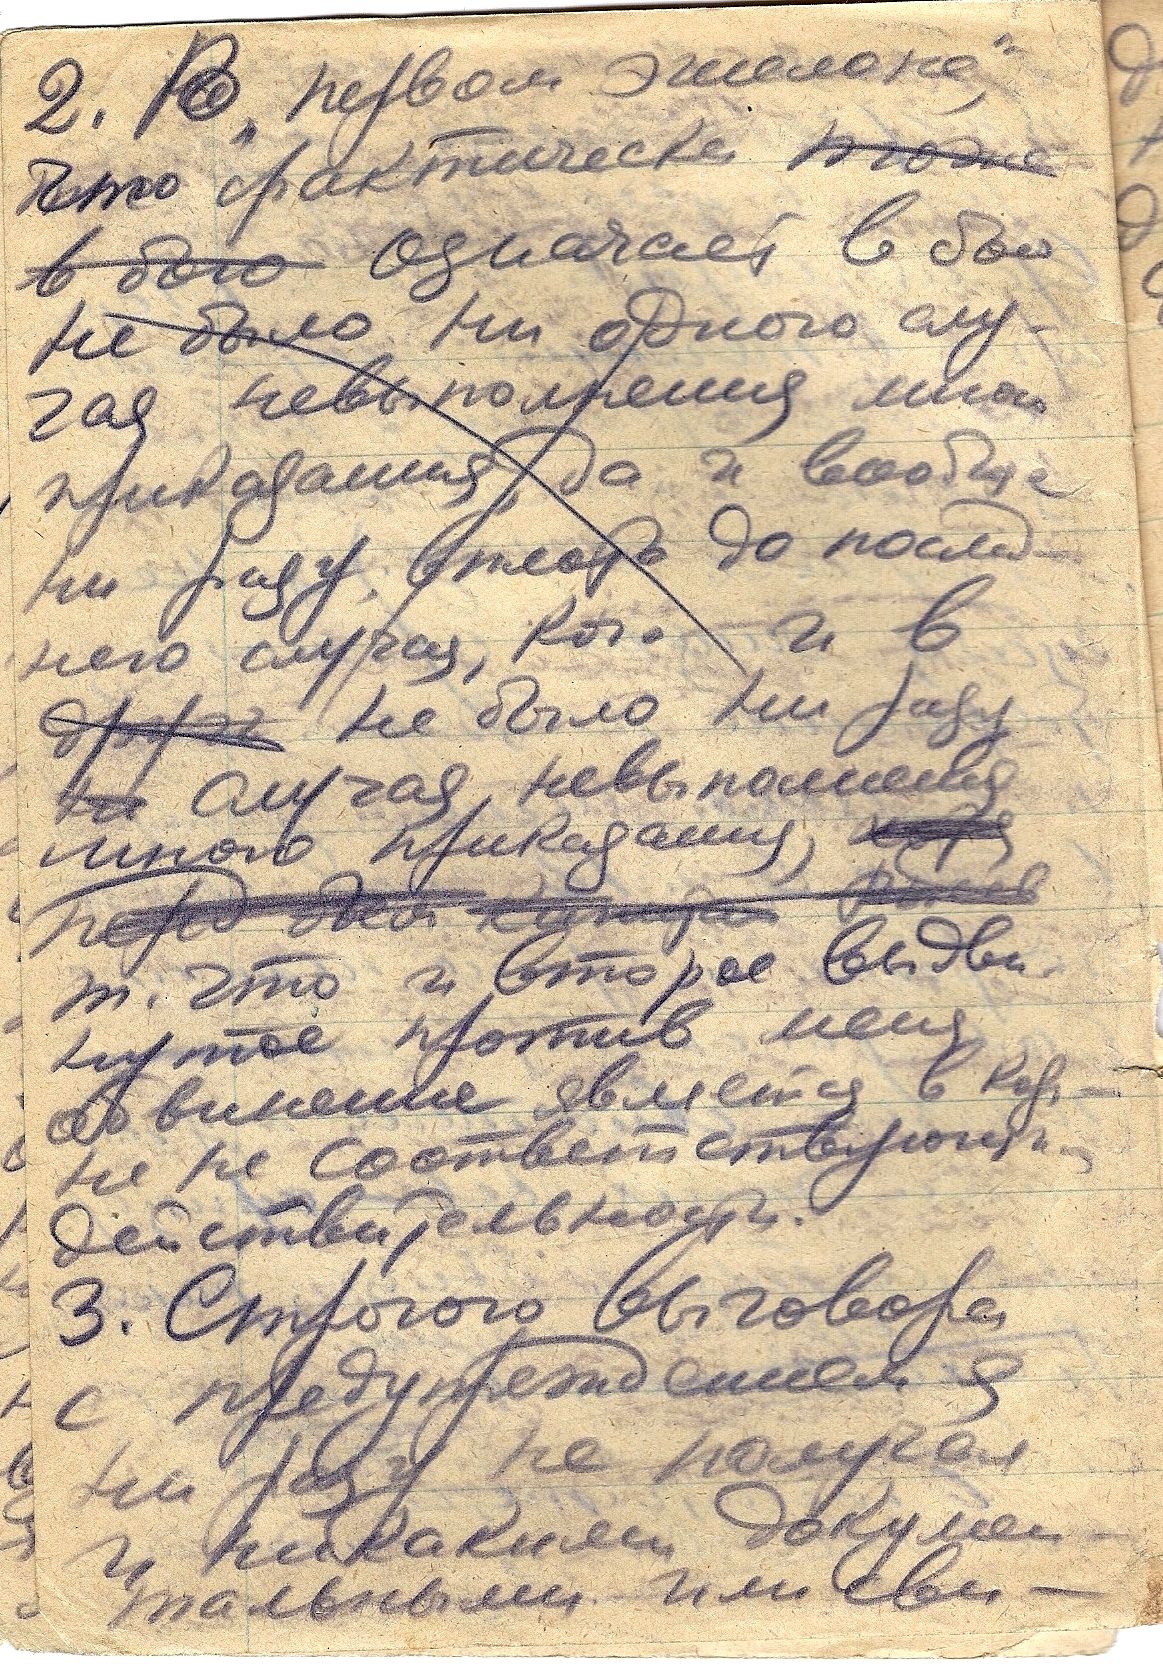 2. В „первом эшелоне,"
что фактически тоже
в бою означает в бою
не было ни одного слу-
чая невыполнения мною
приказания, да и вообще
ни разу, вплоть до послед-
него случая, и в
не было ни разу
ни случая невыполнения
мною приказания,
перед
т. что и второе выдви-
нутое против меня
обвинение является в кор-
не не соответствующим
действительности.
3. Строгого выговора
с предупреждением я
ни разу не получал
и никакими докумен-
тальными или сви-